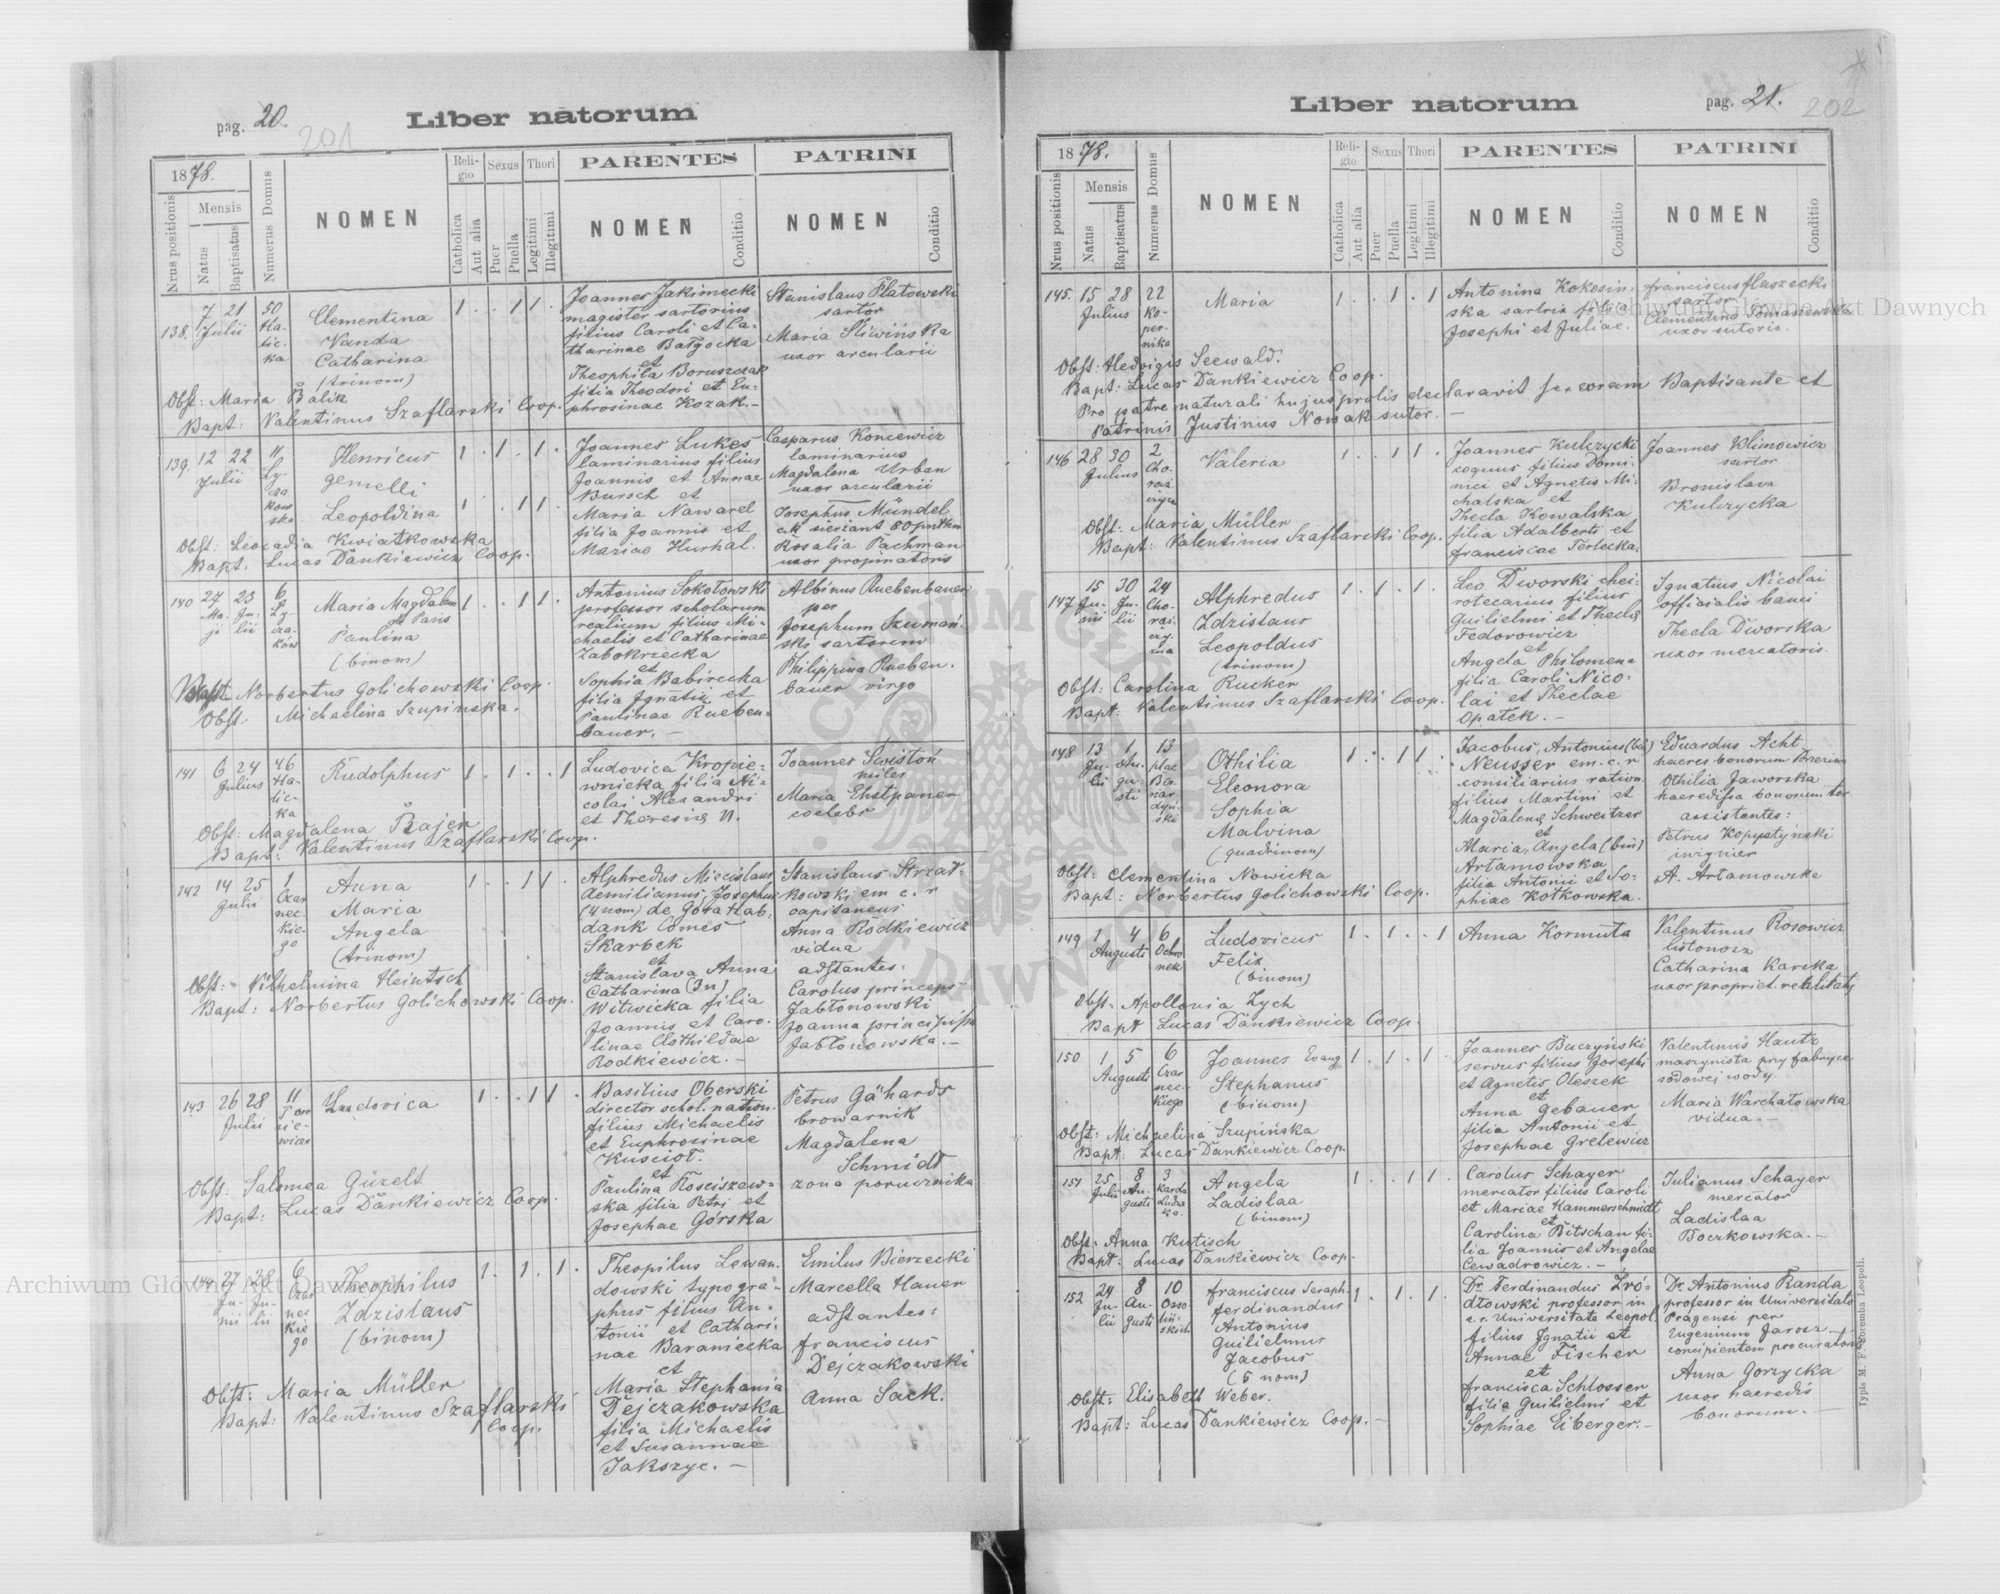 pag. 20.
201
Liber natorum
1878.
Nrus positionis
Mensis
Natus
Baptisatus
Numerus Domus
NOMEN
Religio
Catholica
Aut alia
Sexus
Puer
Puella
Thori
Legitimi
Illegitimi
PARENTES
NOMEN
Conditio
PATRINI
NOMEN
Conditio
138. 7 21 Julii
50 Halicka
Clementina
Vanda
Catharina
(trinom)
1 . . 1 1 .
Joannes Jakimecki
magister sartorius
filius Caroli et Ca-
tharinae Bałgocka
et
Theophila Boruszczak
filia Theodori et Eu-
phrosinae Kozak. —
Stanislaus Platowski
sartor
Maria Sliwińska
uxor arcularii
Obst: Maria Balik
Bapt: Valentinus Szaflarski Coop.
139. 12 22 Julii
11 Ly-
cza-
kow
ska
Henricus
gemelli
Leopoldina
1 . 1 . 1 .
1 . . 1 1
Joannes Lukes
laminarius filius
Joannis et Annae
Bursch et
Maria Nawarel
filia Joannis et
Mariae Hurhal.
Casparus Koncewicz
laminarius
Magdalena Urban
uxor arcularii
Josephus Mündel
Rosalia Pachman
uxor propinatoris
Obst: Leocadia Kwiatkowska
Bapt: Lucas Dankiewicz Coop.
140 27 Maji 23 Julii
6 Ly-
cza-
ków
Maria Magdalena
de Paris
Paulina
(binom)
1 . . 1 1 .
Antonius Sokołowski
professor scholarum
realium filius Mi-
chaelis et Catharinae
Zabokrzecka
et
Sophia Babirecka
filia Ignatii et
Paulinae Rueben-
bauer. —
Albinus Ruebenbauer
per
Josephum Szumań-
ski sartorem
Philippina Rueben-
bauer virgo
Bapt: Norbertus Golichowski Coop.
Obst: Michaelina Szupinska.
141 6 24 Julius
46 Ha-
lic-
ka
Rudolphus
1 . 1 . . 1
Ludovica Kropie-
wnicka filia Ni-
colai Alexandri
et Theresiae N.
Joannes Swistoń
miles
Maria Ehstpaner
coelebs
Obst: Magdalena Bajer
Bapt: Valentinus Szaflarski Coop.
142 14 25 Julii
1 Czar
nec-
kie-
go
Anna
Maria
Angela
(trinom)
1 . . 1 1 .
Alphredus Miecislaus
Aemilianus, Josephus
(4 nom) de Góra Hab-
dank Comes
Skarbek
et
Stanislava Anna
Catharina (3n)
Witwicka filia
Joannis et Caro-
linae Clothildae
Rodkiewicz. —
Stanislaus Strzał-
kowski em c. r
capitaneus
Anna Rodkiewicz
vidua
adstantes:
Carolus princeps
Jabłonowski
Joanna principissa
Jabłonowska. —
Obst: Vilhelmina Heintsch
Bapt: Norbertus Golichowski Coop.
143 26 28 Julii
11
Ludovica
1 . . 1 1 .
Basilius Oberski
director schol. nation.
filius Michaelis
et Euphrosinae
Kusciot.
et
Paulina Kosciszew-
ska filia Petri et
Josephae Górska
Petrus Gähards
browarnik
Magdalena
Schmidt
zona porucznika
Obst: Salomea Güzelt
Bapt: Lucas Dankiewicz Coop.
144 27 Junii 28 Julii
6 Czar
nec
kie
go
Theophilus
Zdzislaus
(binom)
1. . 1. . 1. .
Theopilus Lewan-
dowski typogra-
phus filius An-
tonii et Cathari-
nae Baraniecka
et
Maria Stephania
Dejczakowska
filia Michaelis
et Susannae
Jakszyc. —
Emilus Bierzecki
Marcella Hauer
adstantes:
franciscus
Dejczakowski
Anna Sack.
Obst: Maria Müller
Bapt: Valentinus Szaflarski
Coop.
pag. 21.
202
Liber natorum
1878.
Nrus positionis
Mensis
Natus
Baptisatus
Numerus Domus
NOMEN
Religio
Catholica
Aut alia
Sexus
Puer
Puella
Thori
Legitimi
Illegitimi
PARENTES
NOMEN
Conditio
PATRINI
NOMEN
Conditio
145. 15 28 Julius
22 Ko-
per-
nika
Maria
1 . . 1 . 1
Antonina Kokesin-
ska sartrix filia
Josephi et Juliae.
franciscus flaszecki
sartor
Clementina Tomaszewska
uxor sutoris.
Obst: Hedvigis Seewald.
Bapt: Lucas Dankiewicz Coop.
Pro patre naturali hujus prolis declaravit se coram Baptisante et
Patrinis Justinus Nowak sutor. —
146 28 30 Julius
2 Cho-
rąż
czyzna
Valeria
1 . . 1 1 .
Joannes Kulczycki
coquus filius Domi-
nici et Agnetis Mi-
chalska et
Thecla Kowalska
filia Adalberti et
franciscae Terlecka.
Joannes Klimowicz
sartor
Bronislava
Kulczycka
Obst: Maria Müller
Bapt: Valentinus Szaflarski Coop.
147 15 Junii 30 Julii
24 Cho-
rąż-
czy-
zna
Alphredus
Zdzislaus
Leopoldus
(trinom)
1 . 1 . 1 .
Leo Dworski chei-
rotecarius filius
Guilielmi et Theclae
Fedorowicz
et
Angela Philomena
filia Caroli Nico-
lai et Theclae
Opatek. —
Ignatius Nicolai
officialis banci
Thecla Dworska
uxor mercatoris.
Obst: Carolina Rucker
Bapt: Valentinus Szaflarski Coop.
148 13 Julii 1 Augusti
13 plac
Ber
nar-
dyń
ski
Othilia
Eleonora
Sophia
Malvina
(quadrinom)
1 . . 1 1 .
Jacobus, Antonius (bin)
Neusser em. c. r
consiliarius ration.
filius Martini et
Magdalenae Schweitzer
et
Maria, Angela (bin)
Artamowska
filia Antonii et So-
phiae Kotkowska.
Eduardus Acht
haeres bonorum
Othilia Jaworska
haeredissa bonorum ter
assistentes:
Petrus Kopystyński
inżynier
A. Artamowska
Obst: Clementina Nowicka
Bapt: Norbertus Golichowski Coop.
149 1 4 Augusti
6 Ochro
nek
Ludovicus
Felix
(binom)
1 . 1 . . 1
Anna Kormuta
Valentinus Rosowicz
listonosz
Catharina Karska
uxor propriet. realitatis
Obst: Apollonia Zych
Bapt Lucas Dankiewicz Coop.
150 1 5 Augusti
6 Czar
nec-
kiego
Joannes Evang
Stephanus
(binom)
1 . 1 . 1 .
Joannes Buczyński
servus filius Josephi
et Agnetis Oleszek
et
Anna Gebauer
filia Antonii et
Josephae Grelewicz
Valentinus Hautz
maszynista przy fabryce
sodowej wody
Maria Warchatowska
vidua. —
Obst: Michaelina Szupińska
Bapt: Lucas Dankiewicz Coop.
151 25 Julii 8 Augusti
3
Angela
Ladislaa
(binom)
1 . . 1 1 .
Carolus Schayer
mercator filius Caroli
et Mariae Hammerschmidt
et
Carolina Bitschan fi-
lia Joannis et Angelae
Cewadrowicz. —
Julianus Schayer
mercator
Ladislaa
Boczkowska. —
Obst: Anna Kutisch
Bapt: Lucas Dankiewicz Coop.
152 24 Julii 8 Augusti
10 Osso-
liń-
skich
franciscus Seraph.
ferdinandus
Antonius
Guilielmus
Jacobus
(5 nom)
1 . 1 . 1 .
Dr Ferdinandus Źró-
dłowski professor in
c. r. Universitate Leopol.
filius Ignatii et
Annae Fischer
et
francisca Schlosser
filia Guilielmi et
Sophiae Eiberger. —
Dr Antonius Randa
professor in Universitate
Pragensi per
Eugenium Jarosz
concipientem procuratoris
Anna Gorzycka
uxor haeredis
bonorum. —
Obst: Elisabeth Weber.
Bapt: Lucas Dankiewicz Coop. —
Typis M. F. Poremba Leopoli.
Archiwum Główne Akt Dawnych
Archiwum Główne Akt Dawnych
ARCHIWUM GŁÓWNE AKT DAWNYCH